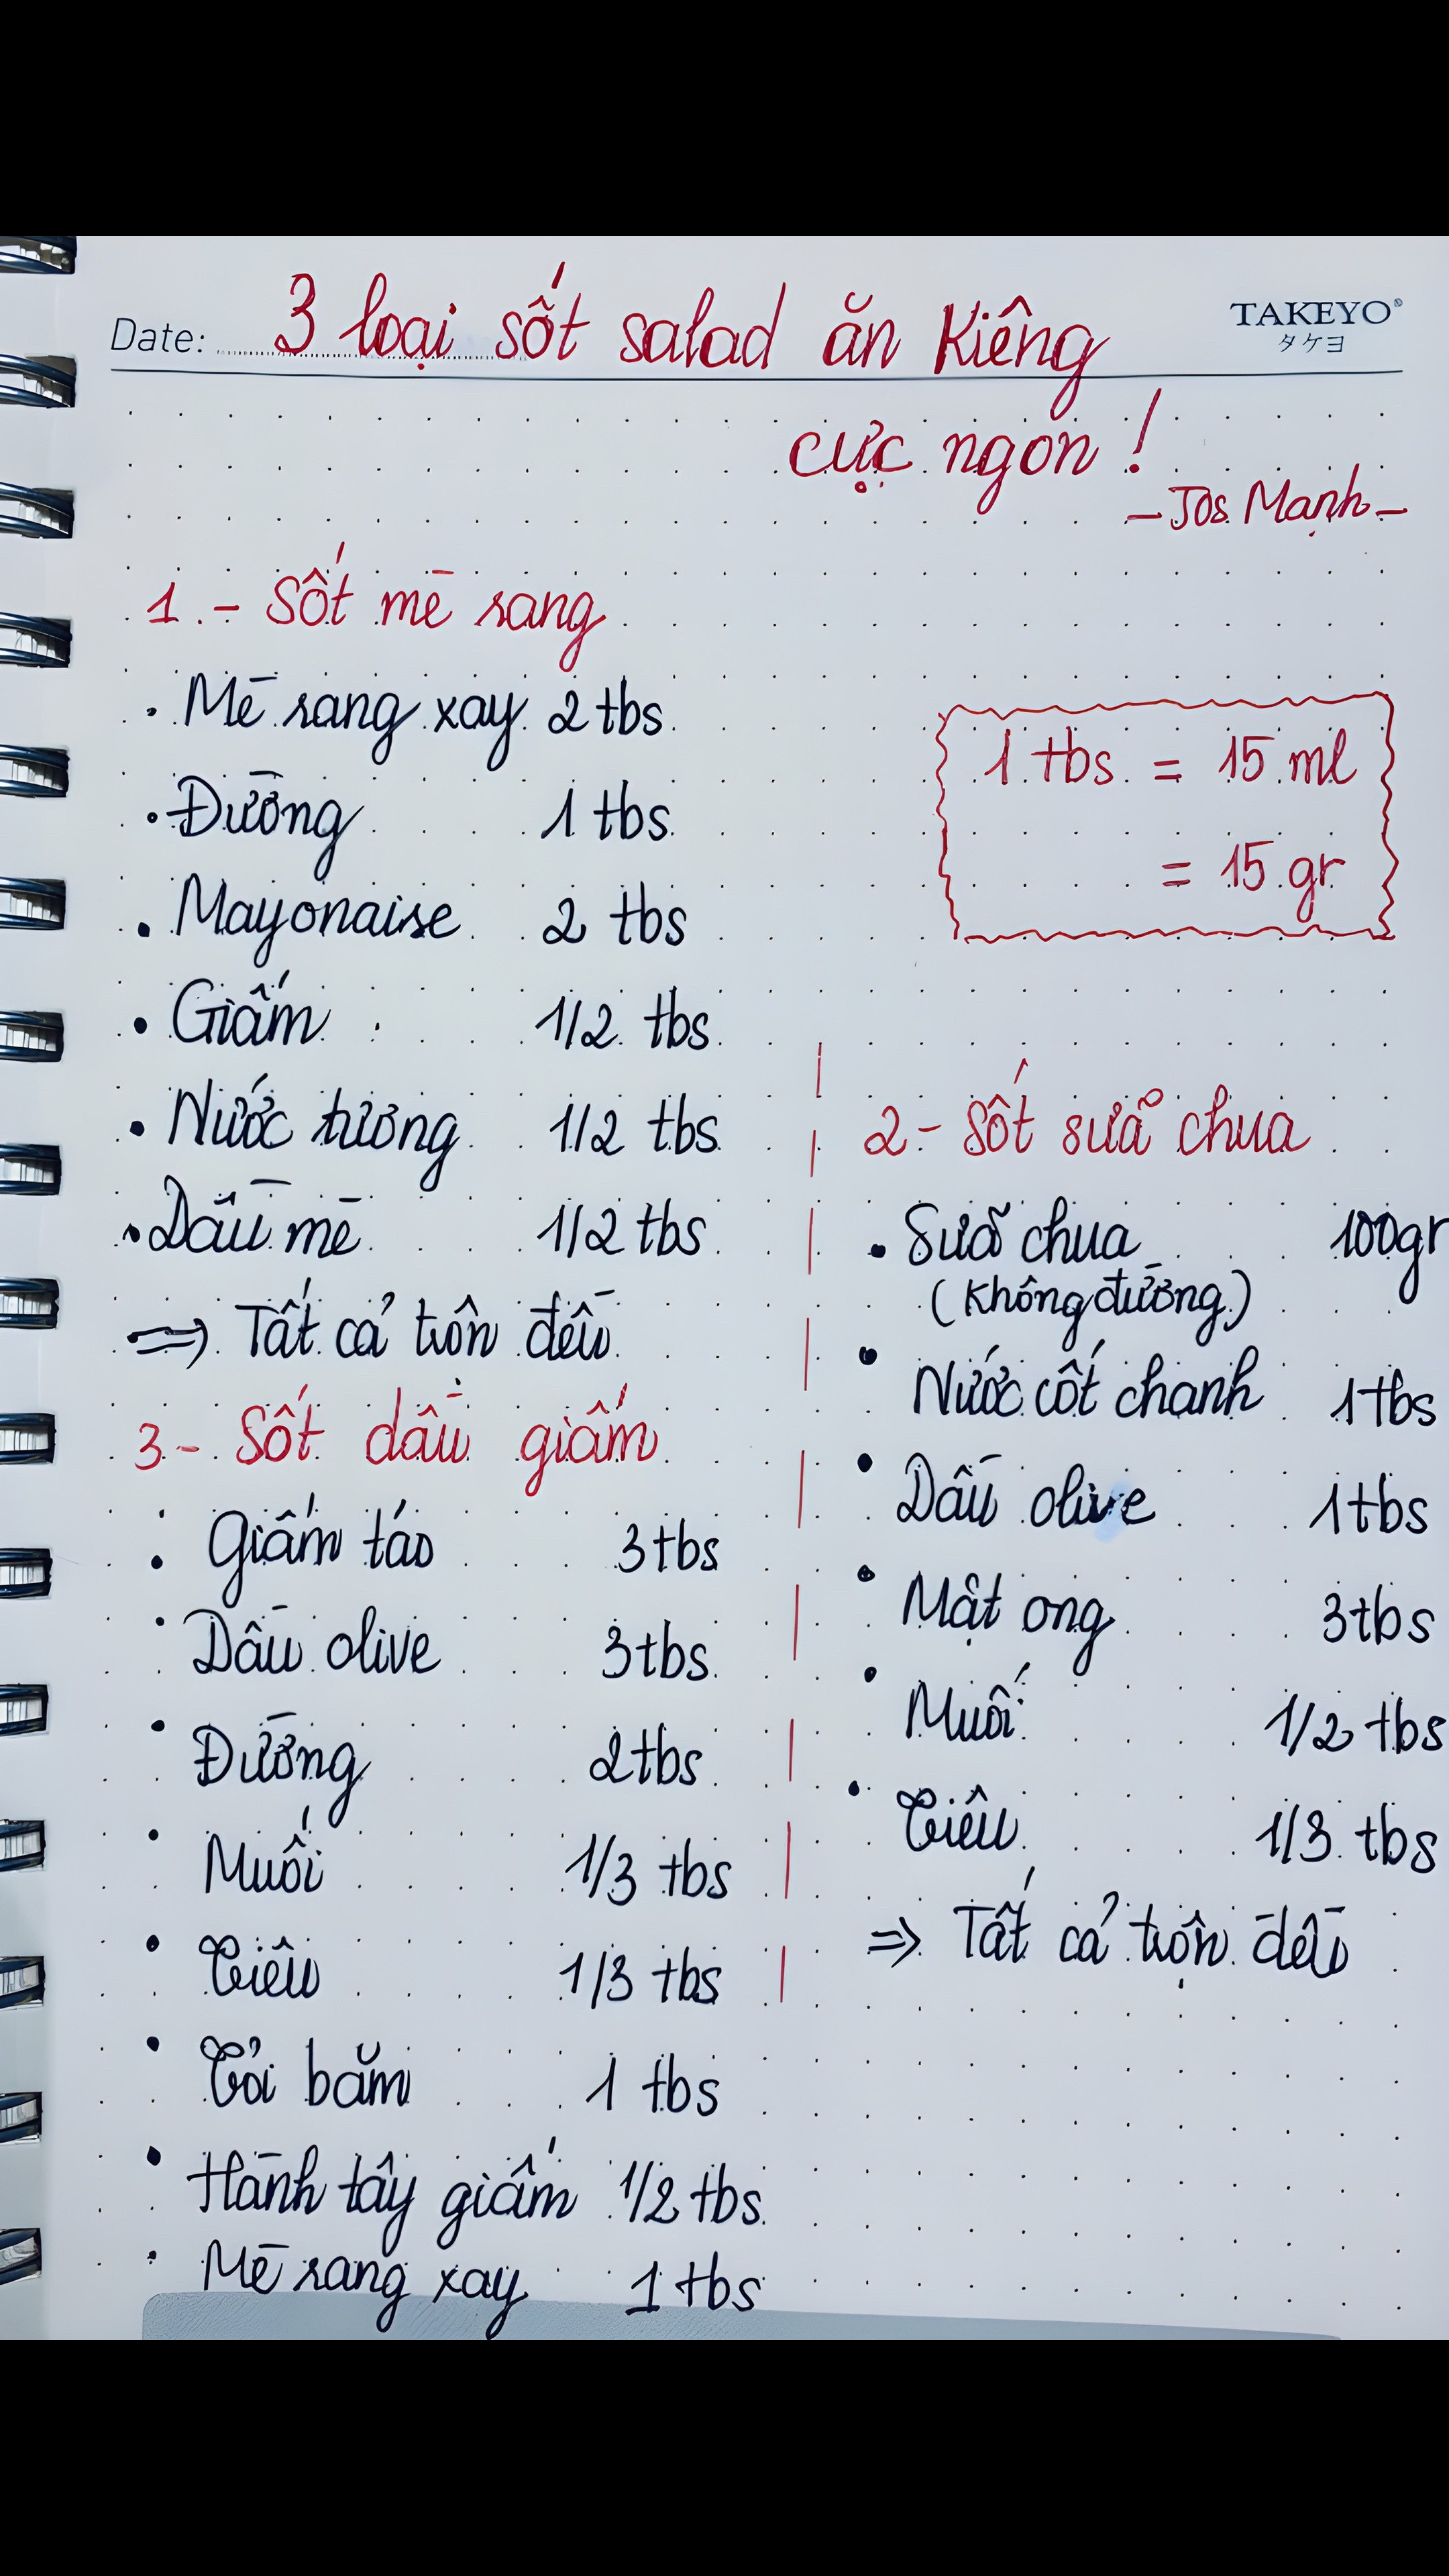 Date: 3 loại sốt salad ăn Kiêng
TAKEYO®
タケヨ
cực ngon!
- Jos Mạnh -
1.- Sốt mè rang
• Mè rang xay 2 tbs
• Đường 1 tbs
• Mayonaise 2 tbs
• Giấm 1/2 tbs
• Nước tương 1/2 tbs
• Dầu mè 1/2 tbs
=> Tất cả trộn đều
1 tbs = 15 ml
= 15 gr
2- Sốt sữa chua
• Sữa chua 100gr
(Không đường)
• Nước cốt chanh 1tbs
• Dầu olive 1tbs
• Mật ong 3tbs
• Muối 1/2 tbs
• Tiêu 1/3 tbs
=> Tất cả trộn đều
3- Sốt dầu giấm
• Giấm táo 3tbs
• Dầu olive 3tbs
• Đường 2tbs
• Muối 1/3 tbs
• Tiêu 1/3 tbs
• Tỏi băm 1 tbs
• Hành tây giấm 1/2 tbs
• Mè rang xay 1 tbs